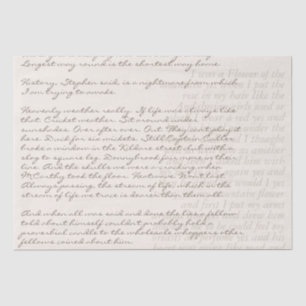 Longest way round is the shortest way home.
History, Stephen said, is a nightmare from which
I am trying to awake.
Heavenly weather really. If life was always like
that. Cricket weather. Sit around under
sunshades. Over after over. Out. They can't play it
here. Duck for six wickets. Still Captain Culler
broke a window in the Kildare street club with a
slog to square leg. Donnybrook fair more in their
line. And the skulls we were acracking when
M'Carthy took the floor. Heatwave. Won't last.
Always passing, the stream of life, which in the
stream of life we trace is dearer than them all.
And when all was said and done the lies a fellow
told about himself couldn't probably hold a
proverbial candle to the wholesale whoppers other
fellows coined about him.
I was a Flower of the
rose in my hair like the
girls used or
him with
yes and
flower
and first I put my arms
drew him
could feel my
yes and his